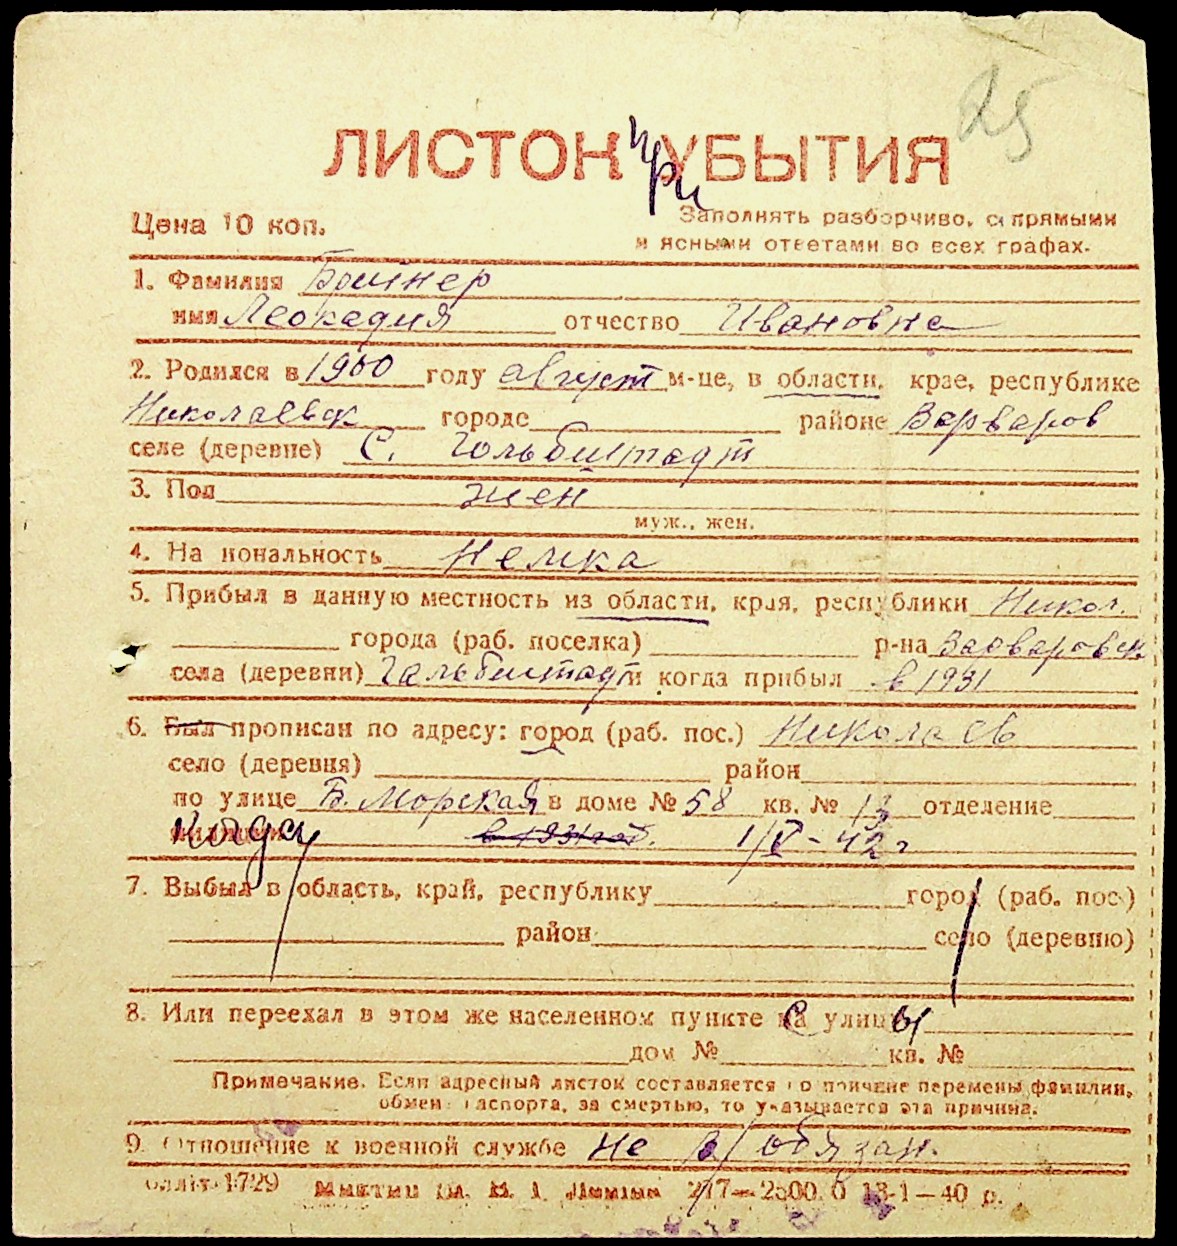 25
ЛИСТОК при УБЫТИЯ
Цена 10 коп.
Заполнять разборчиво, с прямыми
и ясными ответами во всех графах.
1. Фамилия Бритнер
имя Леокадия отчество Ивановна
2. Родился в 1900 году август м-це, в области, крае, республике
Николаевск городе районе Варваров
селе (деревне) С. Гольбштадт
3. Пол жен
муж., жен.
4. Национальность Немка
5. Прибыл в данную местность из области, края, республики Никол.
города (раб. поселка) р-на Варваровск
села (деревни) Гальбштадт и когда прибыл в 1931
6. Был прописан по адресу: город (раб. пос.) Николаев
село (деревня) район
по улице Б. Морская в доме № 58 кв. № 13 отделение
когда в 1931 год. 1/V-42 г
7. Выбыл в область, край, республику город (раб. пос.)
район село (деревню)
8. Или переехал в этом же населенном пункте с улицы
дом № кв. №
Примечание. Если адресный листок составляется по причине перемены фамилии,
обмен паспорта, за смертью, то указывается эта причина.
9. Отношение к военной службе не в/обязан.
1729 2500 13-1—40 р.